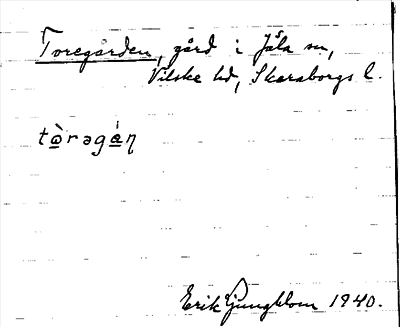 Toregården, gård i Jäla sn,
Vilske hd, Skaraborgs l.
tò̱rəgá̱ņ
Erik Ljungblom 1940.